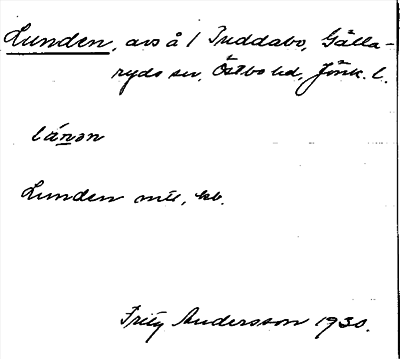 Lunden, avs å 1 Tuddabo, Gälla-
ryds sn, Östbo hd, Jönk. l.
Lunden mtl, kb.
Fritz Andersson 1930.